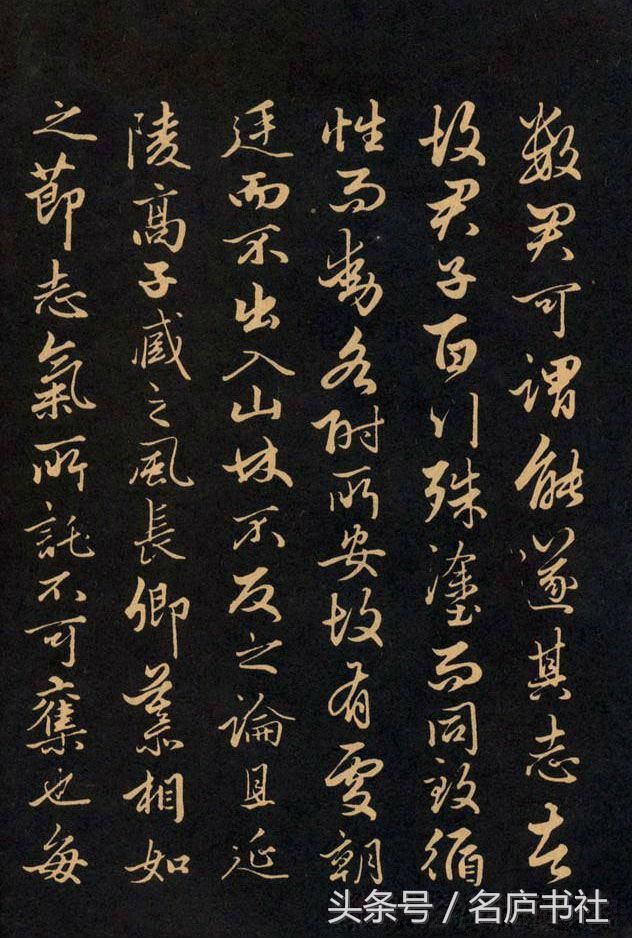 數君可謂能遂其志者
故君子百行殊塗而同致循
性而動各附所安故有處朝
廷而不出入山林不反之論且延
陵高子臧之風長卿慕相如
之節志氣所託不可奪也每
头条号 / 名庐书社